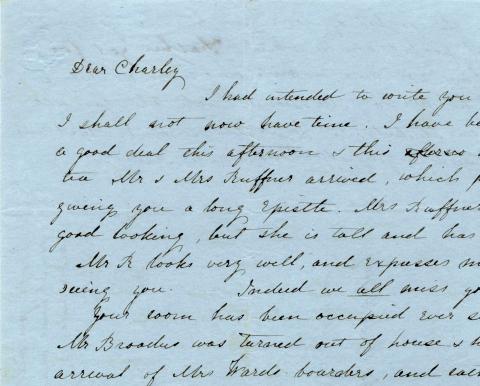 Dear Charley
I had intended to write you
I shall not now have time. I have be
a good deal this afternoon & this
tea Mr & Mrs Ruffner arrived, which p
giving you a long Epistle. Mrs Ruffner
good looking, but she is tall and has
Mr R looks very well, and expesses m
seeing you. Indeed we all miss yo
Your room has been occupied ever s
Mr Broadus was turned out of house & h
arrival of Mrs Wards boarders, and